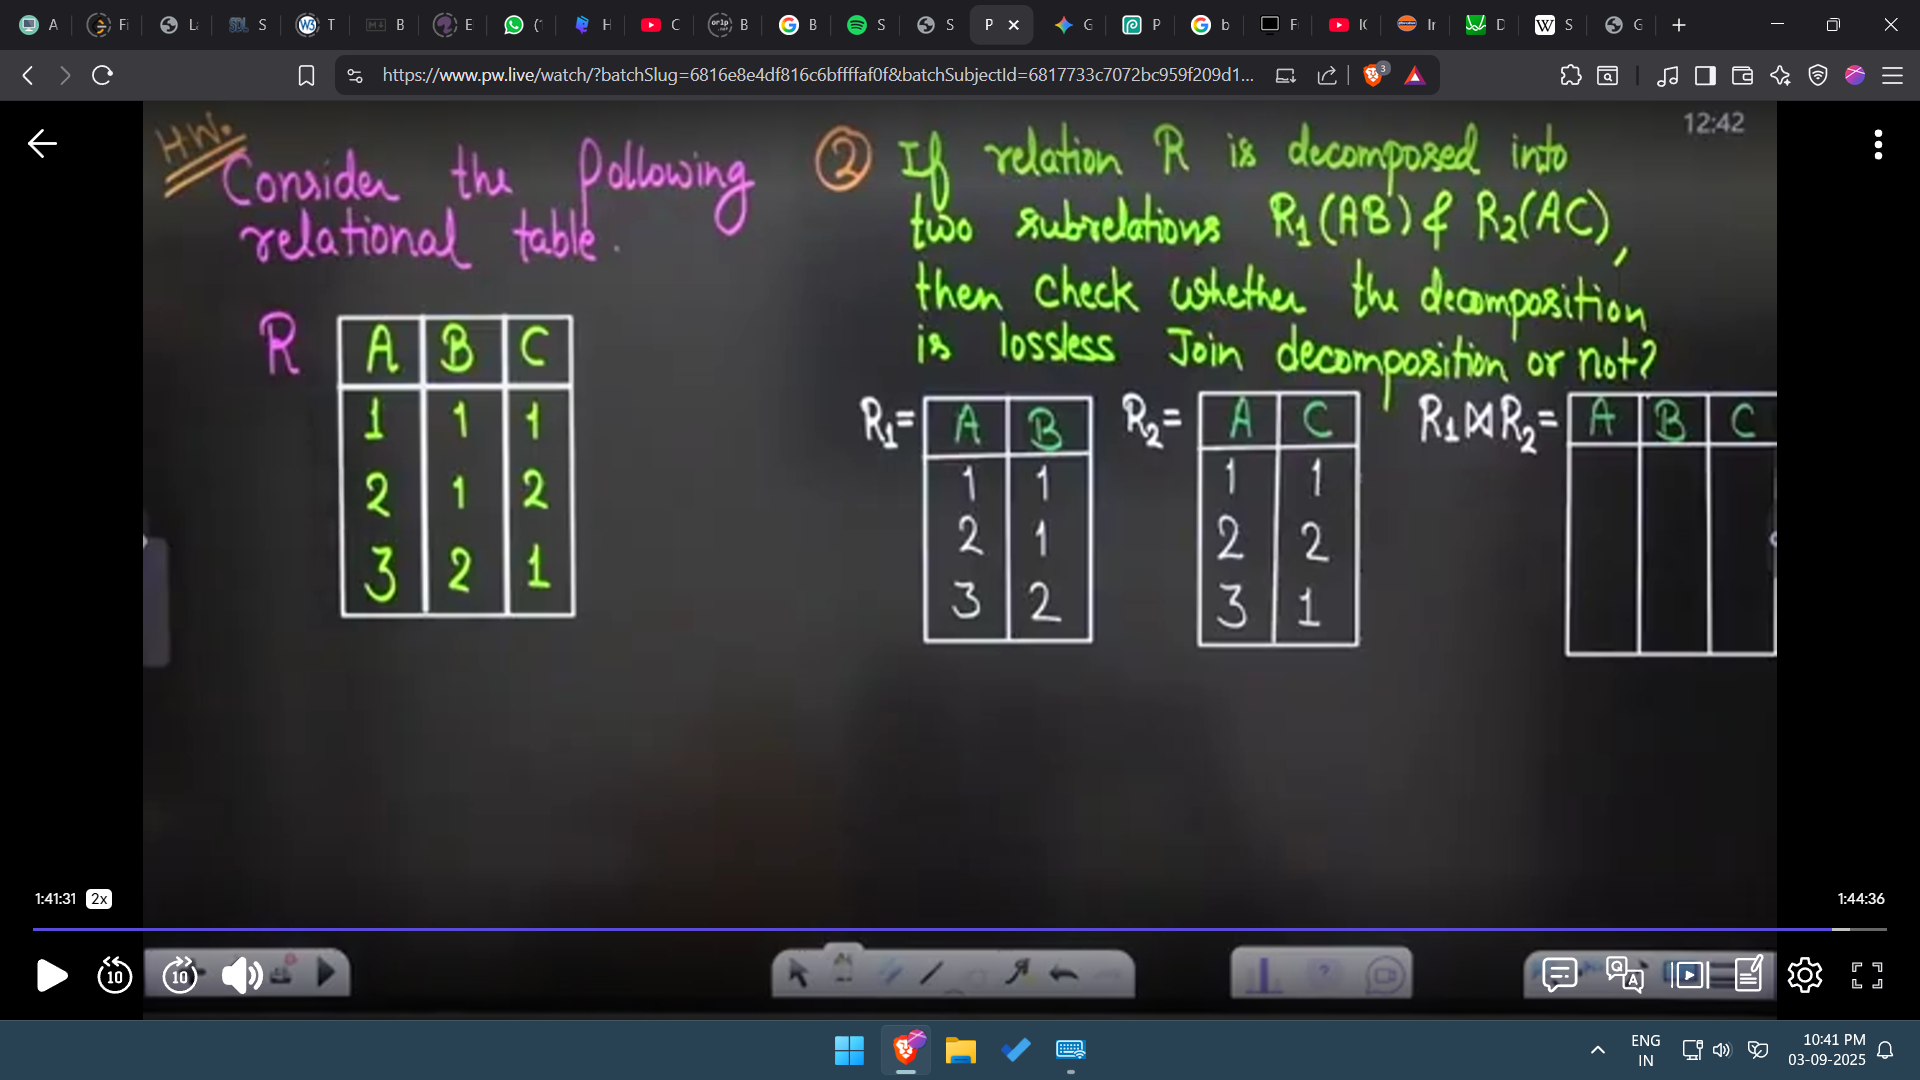 A
Fi
L
SQL S
W3 T
B
E
(1
H
C
B
G B
S
S
P
G
P
G b
F
IC
Ir
D
W S
G
https://www.pw.live/watch/?batchSlug=6816e8e4df816c6bffffaf0f&batchSubjectId=6817733c7072bc959f209d1...
3
12:42
HW.
Consider the following
relational table.
R
A B C
1 1 1
2 1 2
3 2 1
② If relation R is decomposed into
two subrelations R1(AB) & R2(AC),
then check whether the decomposition
is lossless Join decomposition or not?
R1=
A B
1 1
2 1
3 2
R2=
A C
1 1
2 2
3 1
R1⋈R2=
A B C
1:41:31 2x
1:44:36
10
10
ENG
IN
10:41 PM
03-09-2025